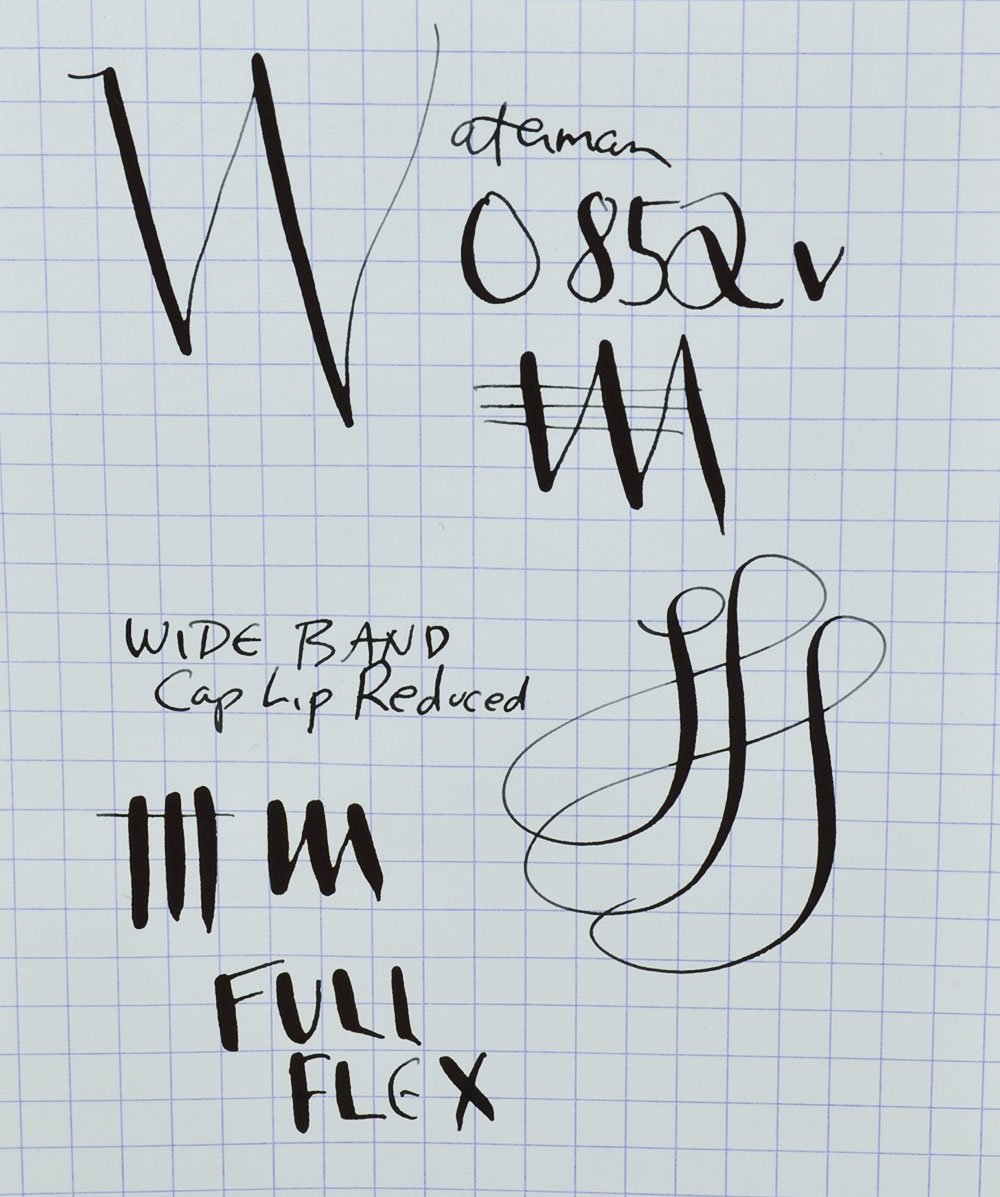 Waterman
0852 v
WIDE BAND
Cap Lip Reduced
FULL
FLEX